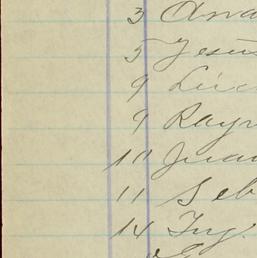 3 Ana
5 Jesus
9 Luc
9 Raym
10 Juan
11 Seb
14 Ing.